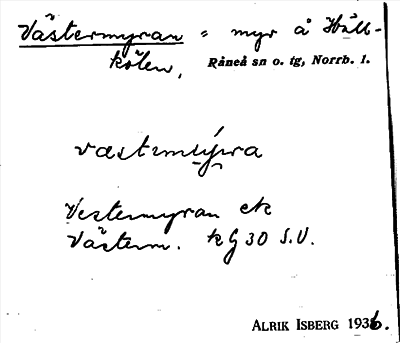 Västermyran = myr å Håll-
kölen, Råneå sn o. tg, Norrb. l.
Vestermyran ek
Västerm. kG 30 S.V.
ALRIK ISBERG 1936.